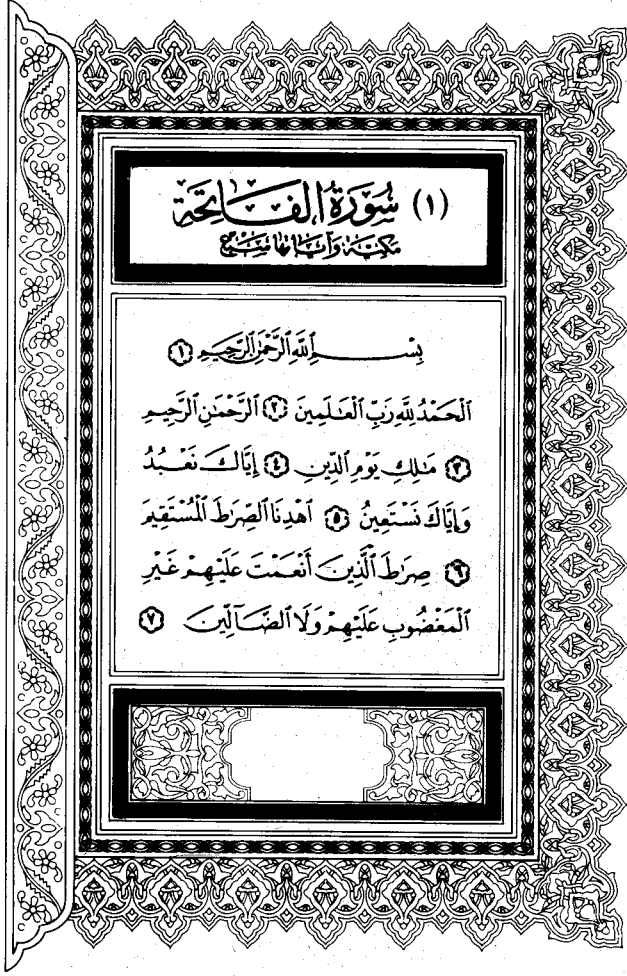 (١) سُورَةُ الفَاتِحَة
مَكيَّة وَآيَاتهَا سَبْع
بِسْمِ ٱللَّهِ ٱلرَّحْمَٰنِ ٱلرَّحِيمِ ١
ٱلْحَمْدُ لِلَّهِ رَبِّ ٱلْعَـٰلَمِينَ ٢ ٱلرَّحْمَٰنِ ٱلرَّحِيمِ
٣ مَـٰلِكِ يَوْمِ ٱلدِّينِ ٤ إِيَّاكَ نَعْبُدُ
وَإِيَّاكَ نَسْتَعِينُ ٥ ٱهْدِنَا ٱلصِّرَٰطَ ٱلْمُسْتَقِيمَ
٦ صِرَٰطَ ٱلَّذِينَ أَنْعَمْتَ عَلَيْهِمْ غَيْرِ
ٱلْمَغْضُوبِ عَلَيْهِمْ وَلَا ٱلضَّآلِّينَ ٧